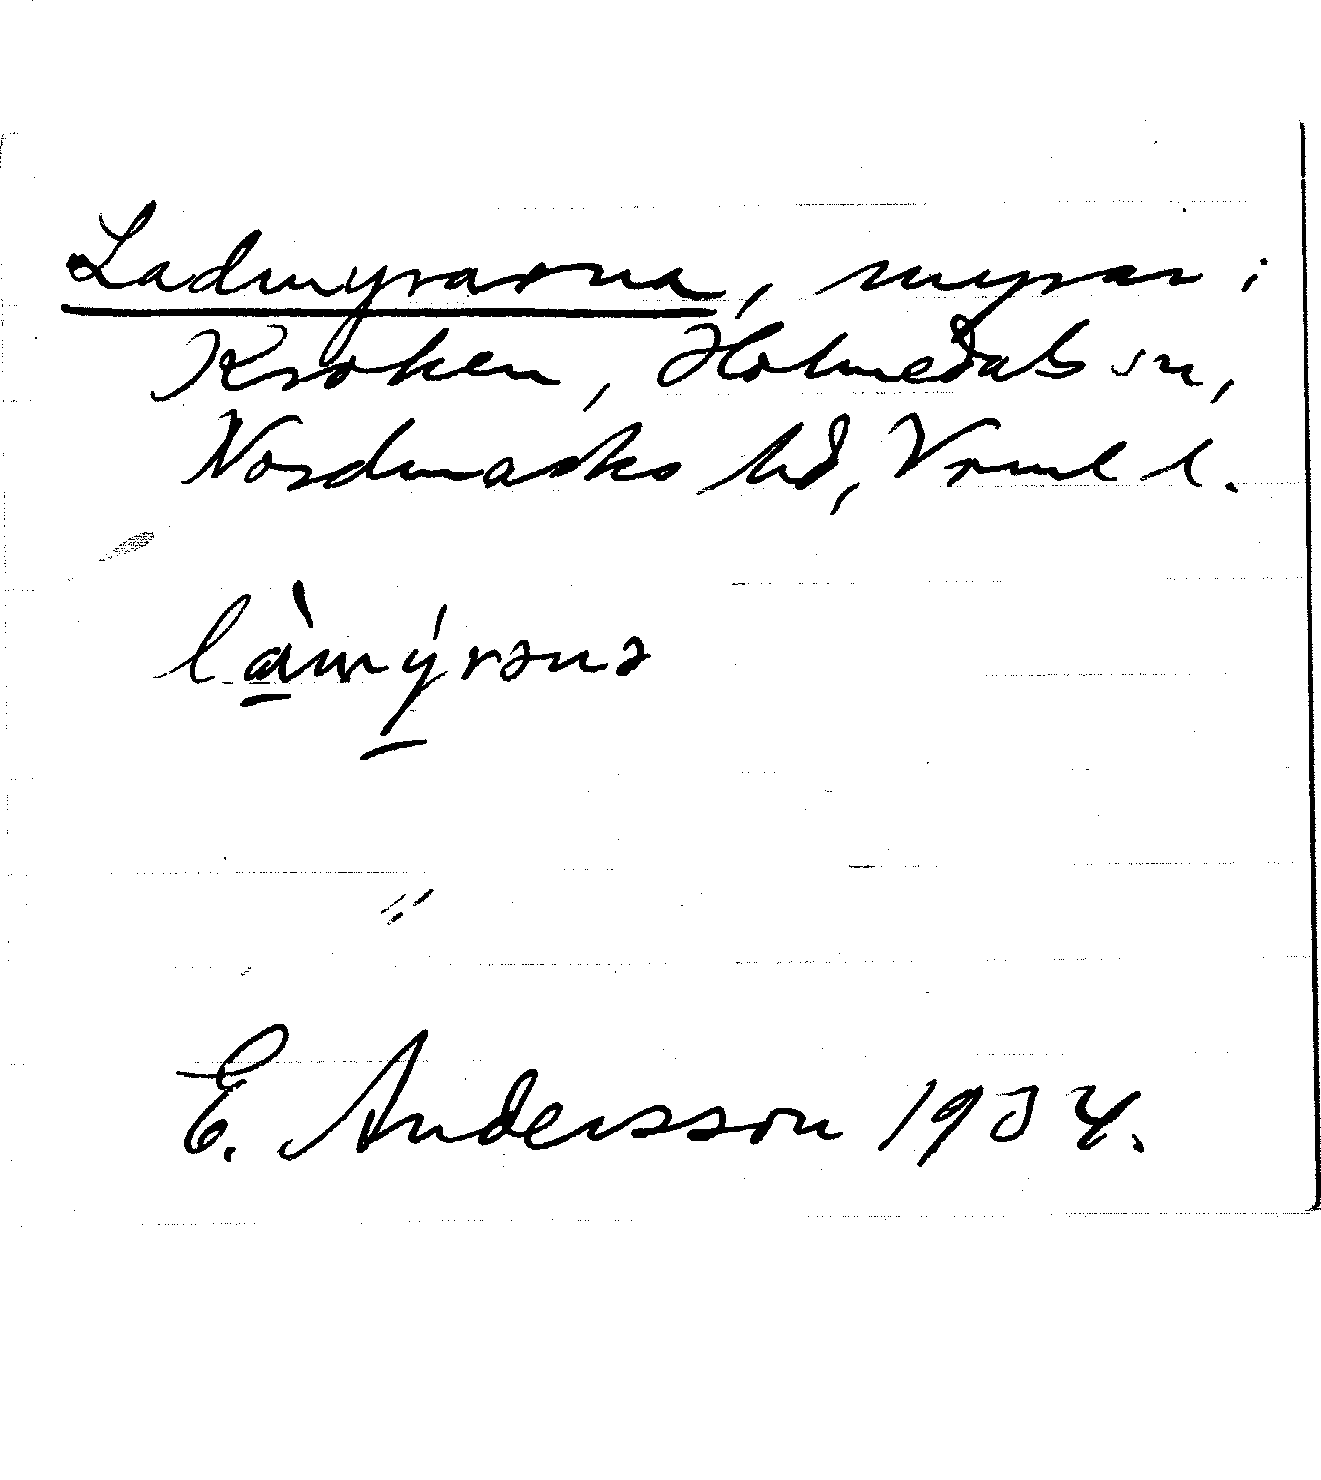 Ladmyrarna, myrar i
Kroken, Holmedals sn,
Nordmarks hd, Vrml l.
là̱mý̱rənə
E. Andersson 1934.